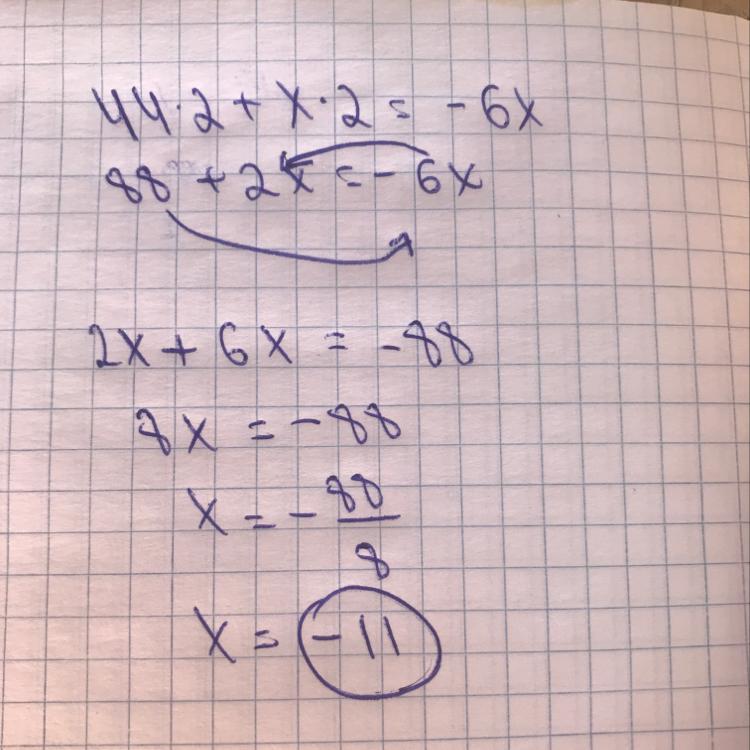 44·2 + x·2 = -6x
88 + 2x = -6x
2x + 6x = -88
8x = -88
x = - 88/8
x = -11